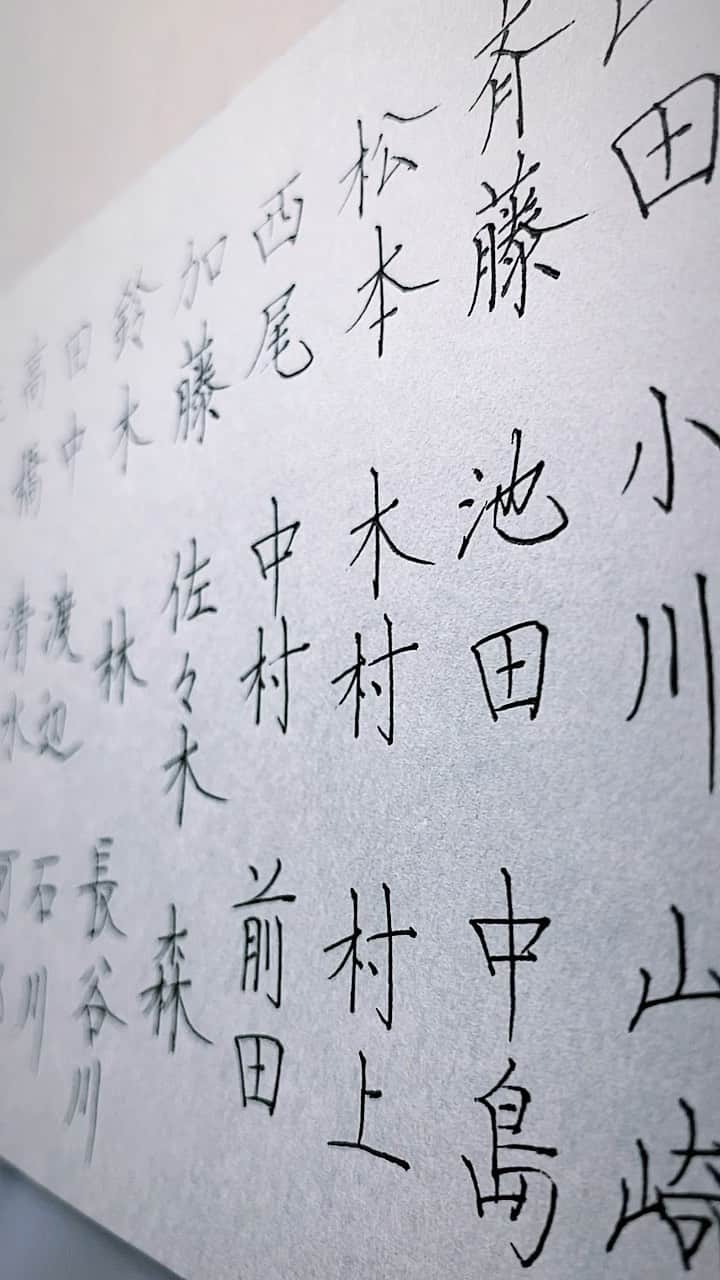 田 小川 山崎
斉藤 池田 中島
松本 木村 村上
西尾 中村 前田
加藤 佐々木 森
鈴木 林 長谷川
田中 渡辺 石川
高橋 清水